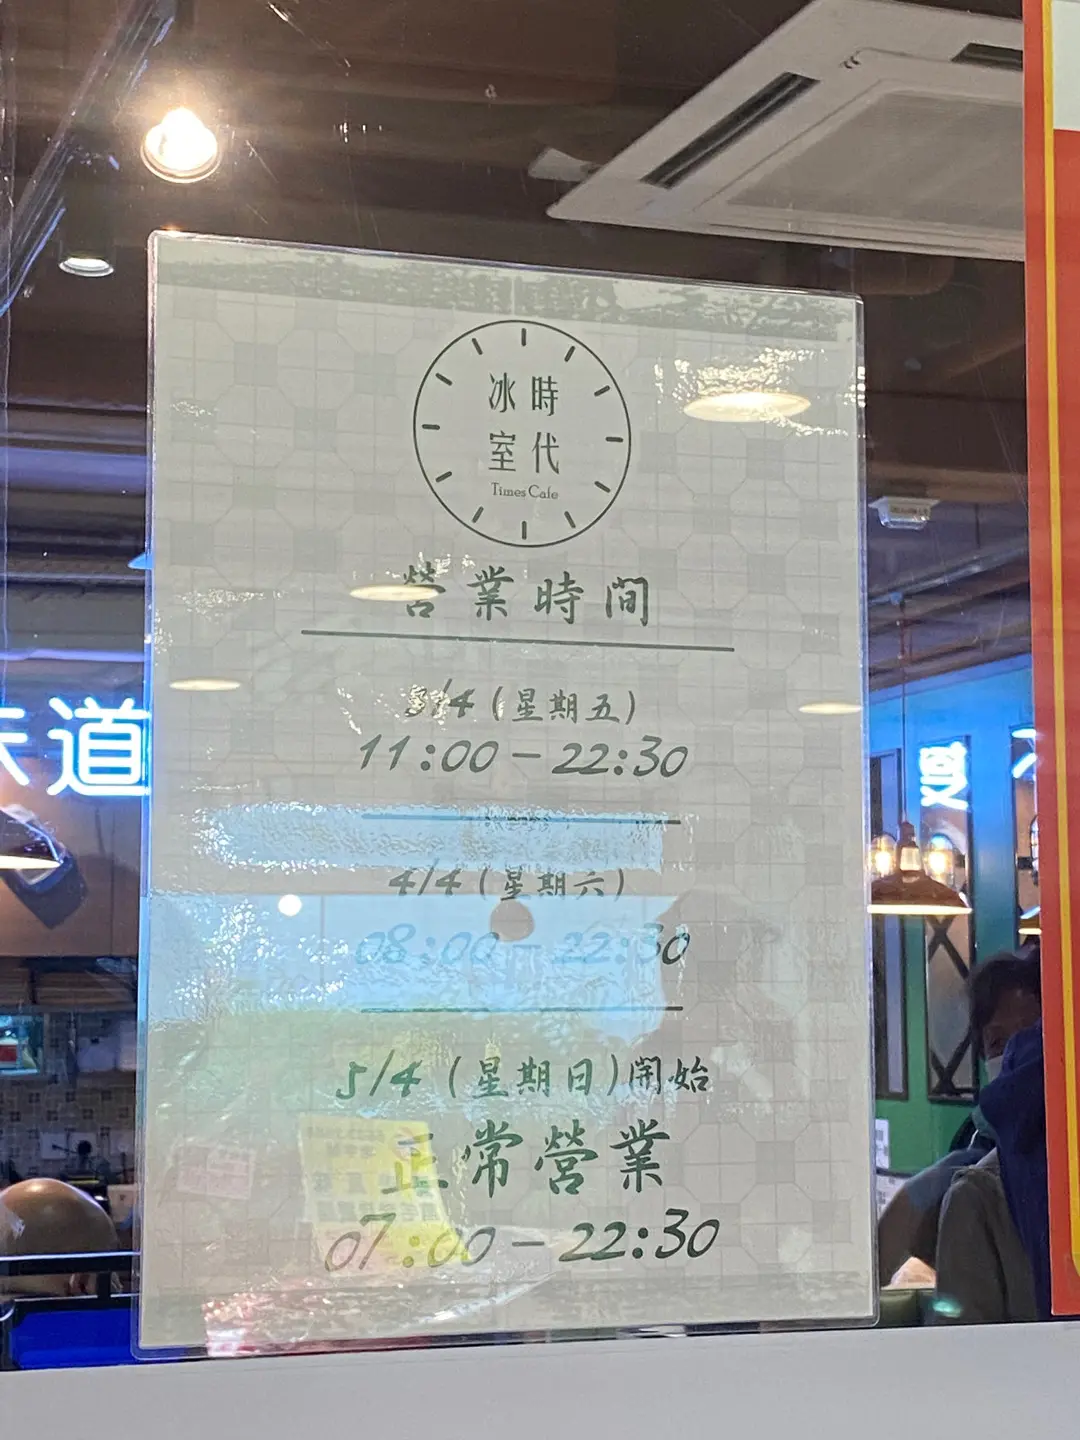 時代
冰室
Times Cafe
營業時間
3/4 (星期五)
11:00 – 22:30
4/4 (星期六)
08:00 – 22:30
5/4 (星期日)開始
正常營業
07:00 – 22:30
道